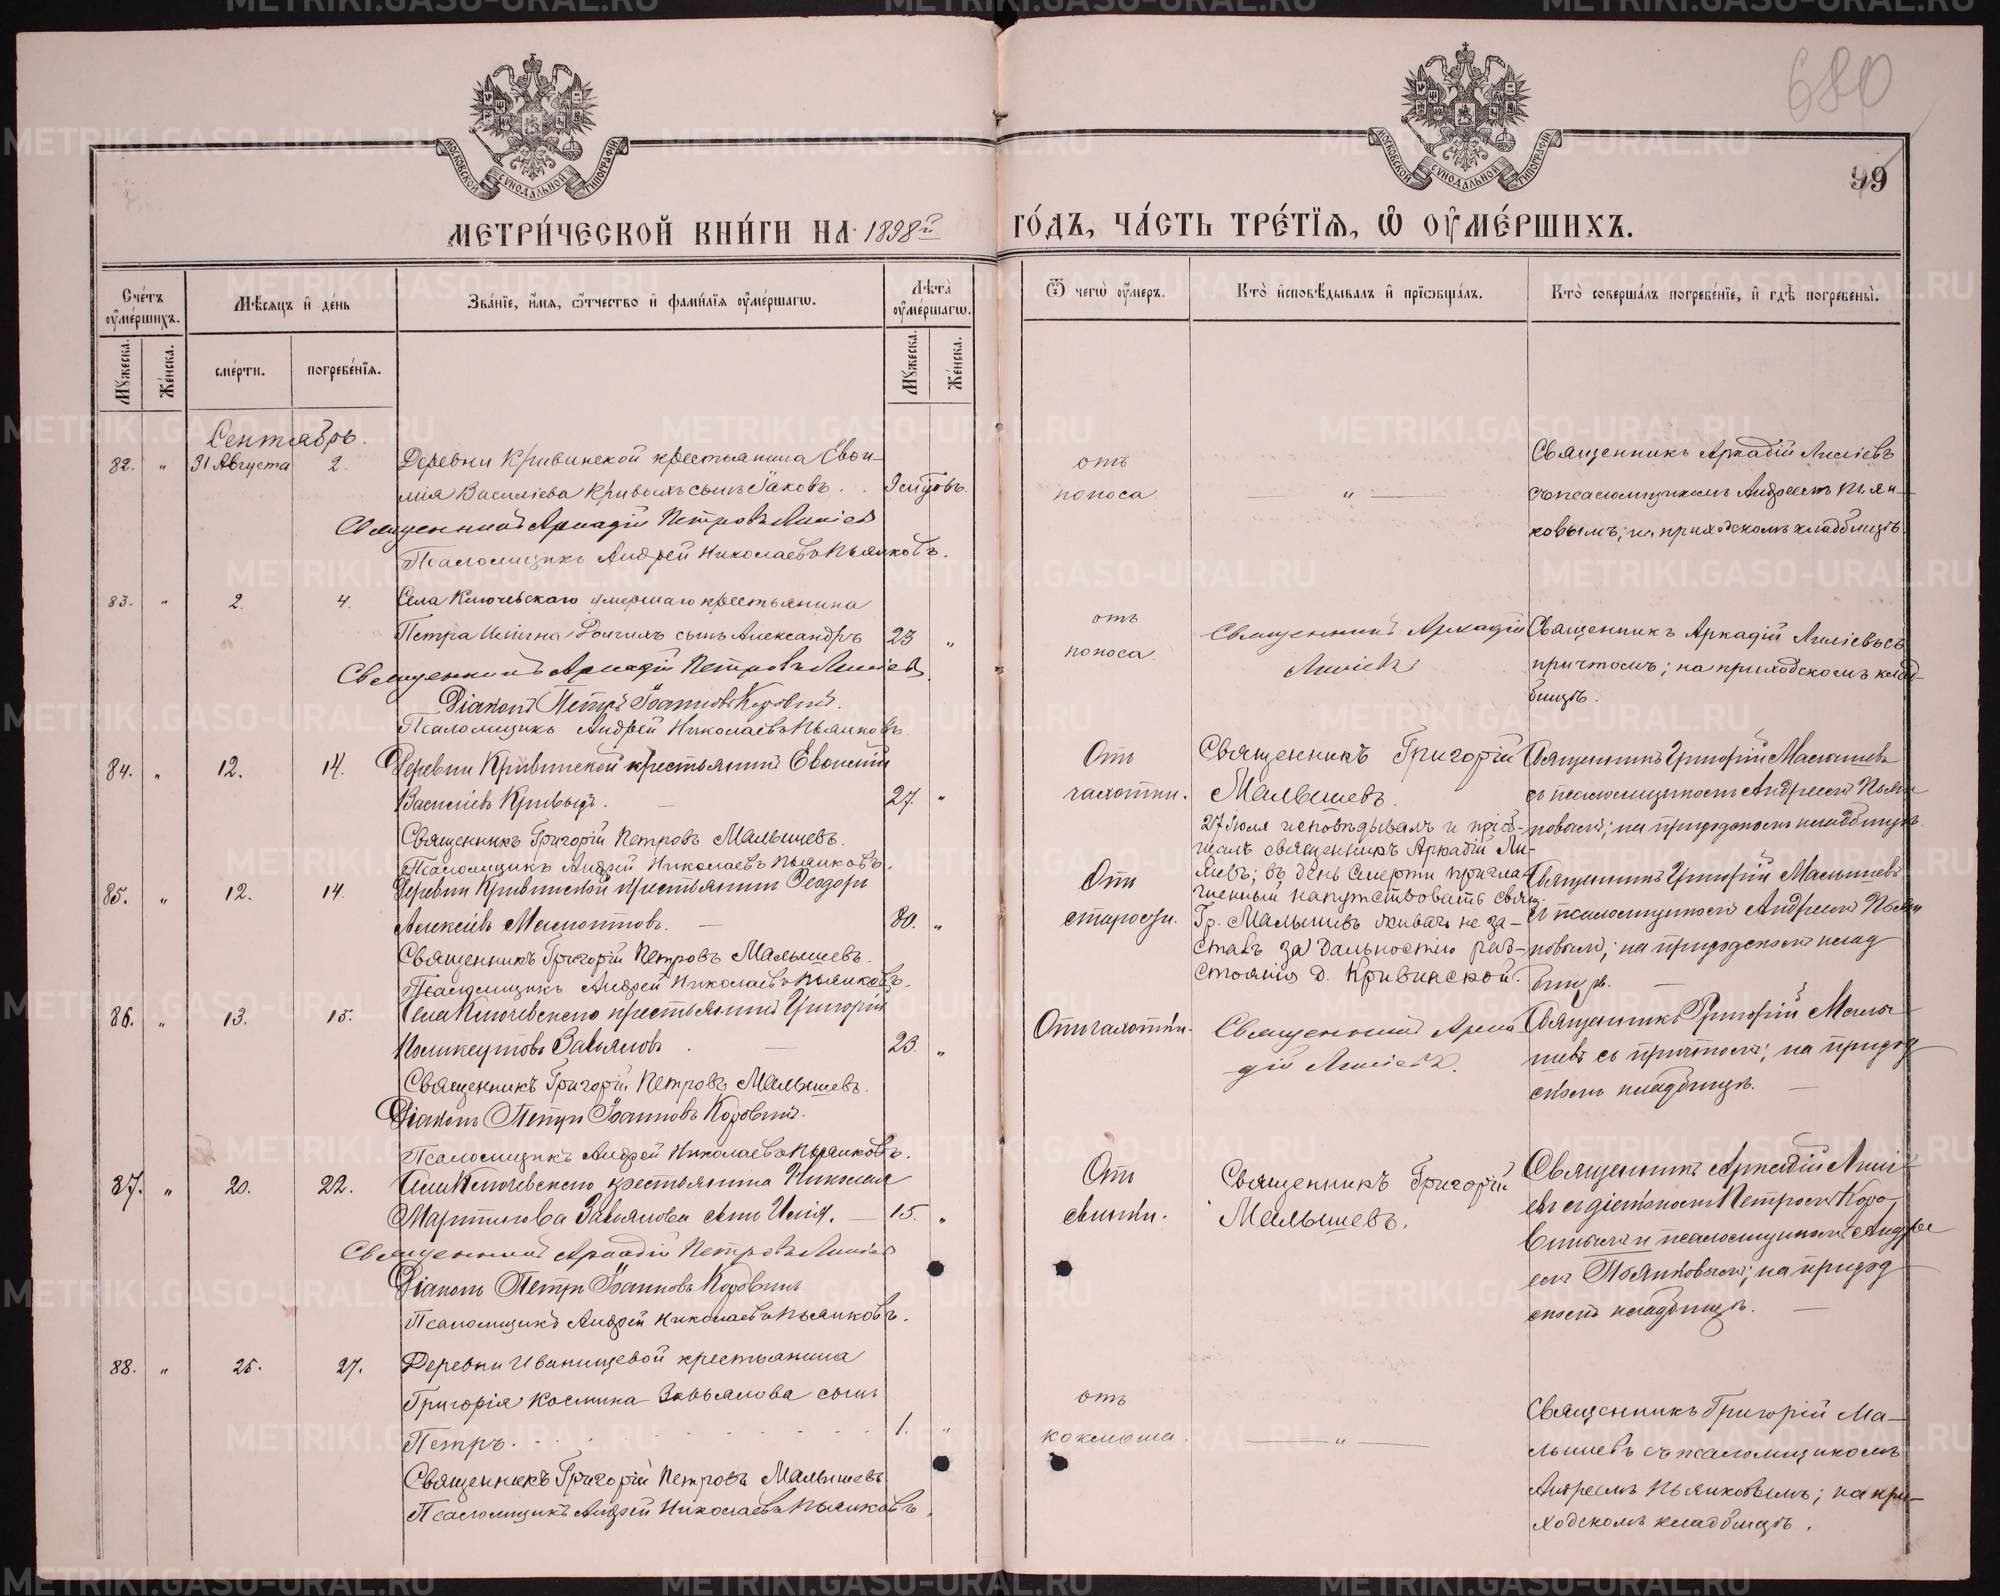 680
99
МОСКОВСКОЙ СѴНОДАЛЬНОЙ ТИПОГРАФІИ
МОСКОВСКОЙ СѴНОДАЛЬНОЙ ТИПОГРАФІИ
МЕТРИ́ЧЕСКОЙ КНИ́ГИ НА 1898й ГО́ДЪ, ЧА́СТЬ ТРЕ́ТЇѦ, Ѽ ОУМЕ́РШИХЪ.
Сче́тъ оумершихъ.
Мꙋжеска.
Же́нска.
Мѣсѧцъ и҆ де́нь
сме́рти.
погребе́нїѧ.
Зва́нїе, и҆́мѧ, ѻ҆́тчество и҆ фами́лїѧ оумершагѡ.
Лѣта̀ оумершагѡ.
Мꙋжеска.
Же́нска.
Ѿ чегѡ̀ оу҆́меръ.
Кто̀ и҆сповѣ́дывалъ и҆ прїѡбща́лъ.
Кто̀ соверша́лъ погребе́нїе, и҆ гдѣ̀ погребены̀.
Сентябрь.
82. „ 31 Августа 2. Деревни Кривинской крестьянина Евфи-
мія Василіева Кривыхъ сынъ Іаковъ.
Священникъ Аркадій Петровъ Лиліевъ
Псаломщикъ Андрей Николаевъ Пьянковъ.
отъ
поноса.
— „ —
Священникъ Аркадій Лиліевъ
съ псаломщикомъ Андреемъ Пьян-
ковымъ; на приходскомъ кладбищѣ.
83. „ 2. 4. Села Ключевскаго умершаго крестьянина
Петра сынъ Александръ 23 „
Священникъ Аркадій Петровъ Лиліевъ.
Діаконъ Петръ Іоанновъ Коровинъ.
Псаломщикъ Андрей Николаевъ Пьянковъ.
отъ
поноса.
Священникъ Аркадій
Лиліевъ
Священникъ Аркадій Лиліевъ съ
причтомъ; на приходскомъ клад-
бищѣ.
84. „ 12. 14. Деревни Кривинской крестьянинъ Евфимій
Василіевъ Кривыхъ. — 27. „
Священникъ Григорій Петровъ Малышевъ.
Псаломщикъ Андрей Николаевъ Пьянковъ.
Отъ
чахотки.
Священникъ Григорій
Малышевъ.
Священникъ Григорій Малышевъ
съ псаломщикомъ Андреемъ Пьян-
ковымъ; на приходскомъ кладбищѣ.
85. „ 12. 14. Деревни Кривинской крестьянинъ Ѳеодоръ
Алексѣевъ — 80. „
Священникъ Григорій Петровъ Малышевъ.
Псаломщикъ Андрей Николаевъ Пьянковъ.
Отъ
старости.
27 Іюля исповѣдывалъ и пріоб-
щалъ священникъ Аркадій Ли-
ліевъ; въ день смерти пригла-
шенный напутствовать свящ.
Гр. Малышевъ живаго не за-
сталъ за дальностію раз-
стоянія д. Кривинской.
Священникъ Григорій Малышевъ
съ псаломщикомъ Андреемъ Пьян
ковымъ; на приходскомъ клад
бищѣ. —
86. „ 13. 15. Села Ключевскаго крестьянинъ Григорій
Завьяловъ. — 23. „
Священникъ Григорій Петровъ Малышевъ.
Діаконъ Петръ Іоанновъ Коровинъ.
Псаломщикъ Андрей Николаевъ Пьянковъ.
Отъ чахотки.
Священникъ Арка
дій Лиліевъ.
Священникъ Григорій Малы
шевъ съ причтомъ; на приход
скомъ кладбищѣ. —
87. „ 20. 22. Села Ключевскаго крестьянина Николая
Мартинова Завьялова сынъ Илія. — 15. „
Священникъ Аркадій Петровъ Лиліевъ
Діаконъ Петръ Іоанновъ Коровинъ
Псаломщикъ Андрей Николаевъ Пьянковъ.
Отъ
свинки.
Священникъ Григорій
Малышевъ.
Священникъ Аркадій Лилі-
евъ съ діакономъ Петромъ Коро-
винымъ и псаломщикомъ Андре
емъ Пьянковымъ; на приход
скомъ кладбищѣ. —
88. „ 25. 27. Деревни Иванищевой крестьянина
Григорія Космина Завьялова сынъ
Петръ. 1. „
Священникъ Григорій Петровъ Малышевъ
Псаломщикъ Андрей Николаевъ Пьянковъ.
отъ
коклюша.
— „ —
Священникъ Григорій Ма-
лышевъ съ псаломщикомъ
Андреемъ Пьянковымъ; на при-
ходскомъ кладбищѣ.
METRIKI.GASO-URAL.RU